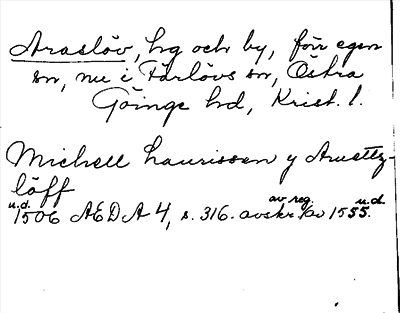 Araslöv, hg och by, förr egen
sn, nu i Färlövs sn, Östra
Göinge hd, Krist. l.
Michell Laurissen y Arusttz-
löff
u.d. av reg. u.d.
1506 ÆDA 4, s. 316. avskr. av 1555.